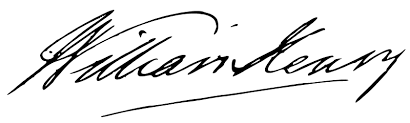 William Henry